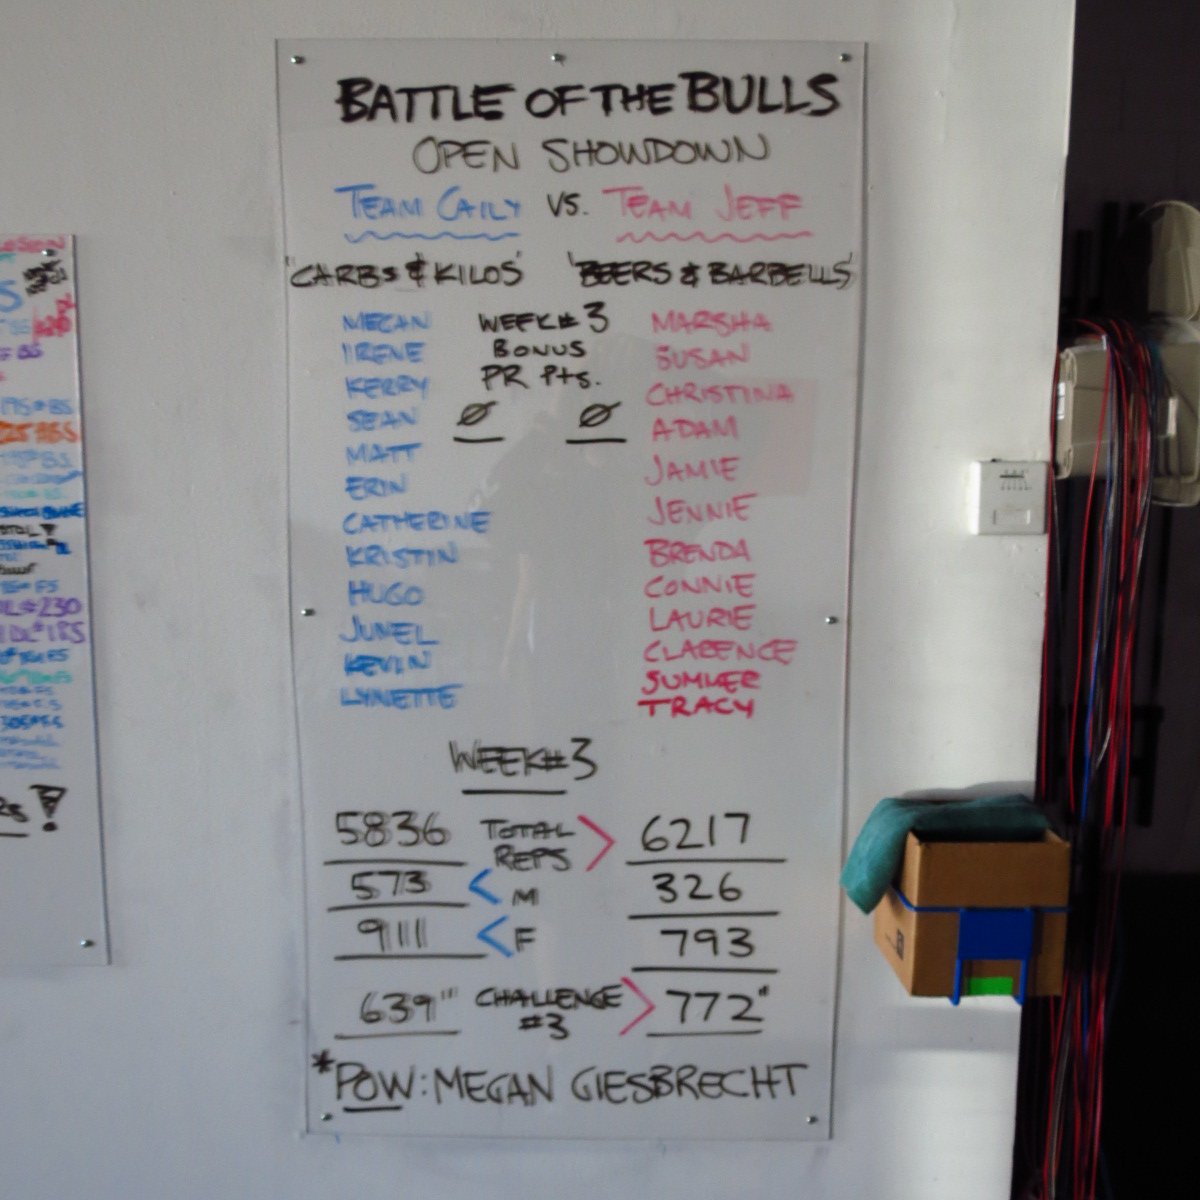 BATTLE OF THE BULLS
OPEN SHOWDOWN
TEAM CAILY VS. TEAM JEFF
"CARBS & KILOS" "BEERS & BARBELLS"
MEGAN
IRENE
KERRY
SEAN
MATT
ERIN
CATHERINE
KRISTIN
HUGO
JUNEL
KEVIN
LYNETTE
WEEK# 3
BONUS
PR Pts.
Ø Ø
MARSHA
SUSAN
CHRISTINA
ADAM
JAMIE
JENNIE
BRENDA
CONNIE
LAURIE
CLARENCE
SUMMER
TRACY
WEEK#3
5836 TOTAL REPS > 6217
573 < M 326
9111 < F 793
639" CHALLENGE #3 > 772"
*POW: MEGAN GIESBRECHT
225# BS
DL#230
DL#185
305#FS